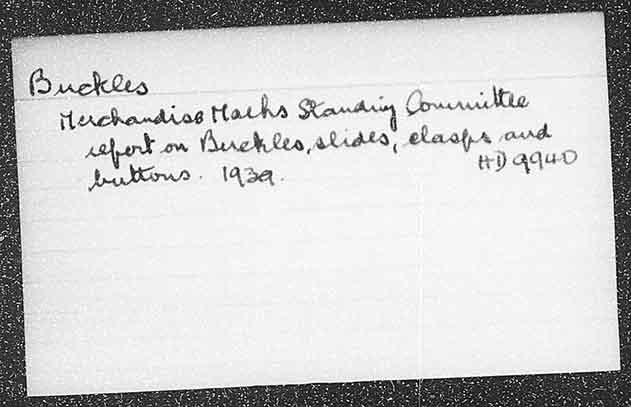 Buckles
Merchandise Marks Standing Committee
report on Buckles, slides, clasps and
buttons. 1939. HD 9940